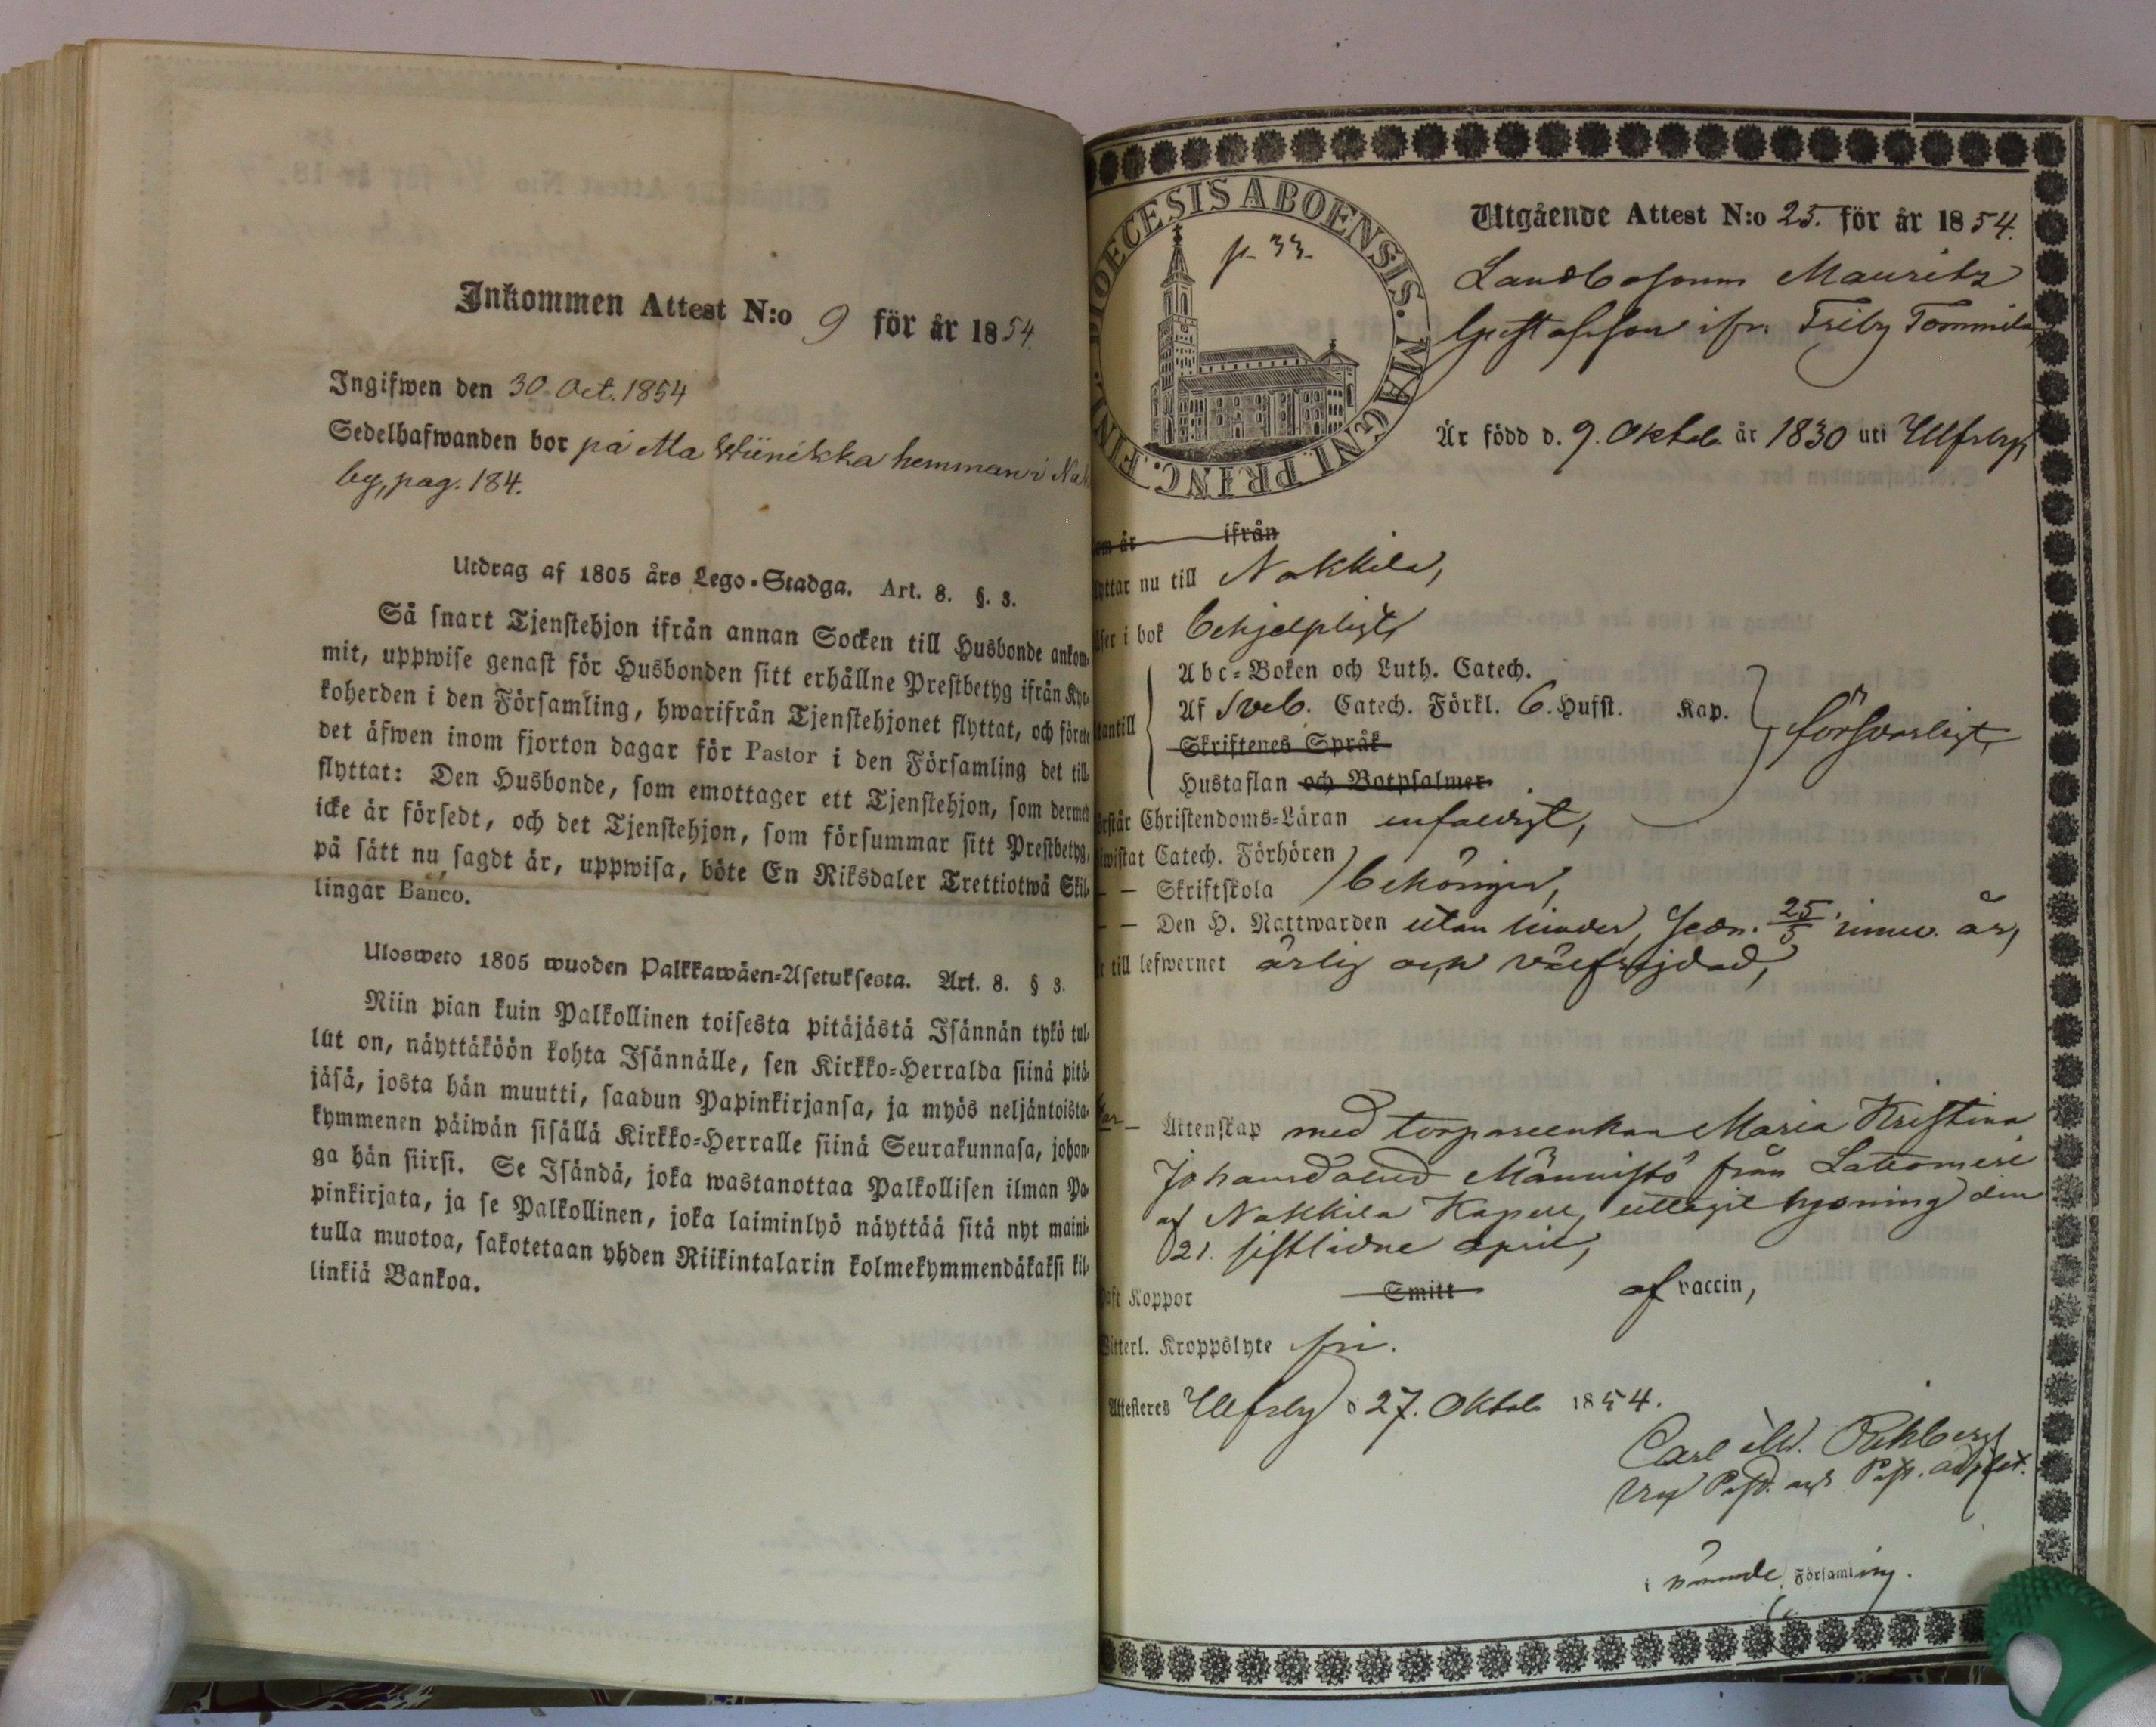 Inkommen Attest N:o 9 för år 1854.
Ingifwen den 30 Oct. 1854
Sedelhafwanden bor på Ala Wiinikka hemman i Nak
by, pag. 184.
Utdrag af 1805 års Lego-Stadga. Art. 8. §. 3.
Så snart Tjenstehjon ifrån annan Socken till Husbonde ankom-
mit, uppwise genast för Husbonden sitt erhållne Prestbetyg ifrån Kyr-
koherden i den Församling, hwarifrån Tjenstehjonet flyttat, och förete
det äfwen inom fjorton dagar för Pastor i den Församling det till-
flyttat: Den Husbonde, som emottager ett Tjenstehjon, som dermed
icke är försedt, och det Tjenstehjon, som försummar sitt Prestbetyg,
på sätt nu sagdt är, uppwisa, böte En Riksdaler Trettiotwå Skil-
lingar Banco.
Ulosweto 1805 wuoden Palkkawäen-Asetuksesta. Art. 8. § 3.
Niin pian kuin Palkollinen toisesta pitäjästä Isännän tykö tul-
lut on, näyttäköön kohta Isännälle, sen Kirkko-Herralda siinä pitä-
jäsä, josta hän muutti, saadun Papinkirjansa, ja myös neljäntoista-
kymmenen päiwän sisällä Kirkko-Herralle siinä Seurakunnasa, johon-
ga hän siirsi. Se Isändä, joka wastanottaa Palkollisen ilman Pa-
pinkirjata, ja se Palkollinen, joka laiminlyö näyttää sitä nyt maini-
tulla muotoa, sakotetaan yhden Riikintalarin kolmekymmendäkaksi kil-
linkiä Bankoa.
DIOECESIS ABOENSIS. MAGNI PRINC. FINL.
p. 33.
Utgående Attest N:o 25. för år 1854.
Landbosonen Mauritz
Gustafsson ifr. Friby Tommila
Är född d. 9. Oktob. år 1830 uti Ulfsby,
om år ifrån
yttar nu till Nakkila,
äser i bok behjelpligt,
Abc-Boken och Luth. Catech.
Af Sveb. Catech. Förkl. 6. Hufst. Kap.
tantill
försvarligt,
Skriftenes Språk
Hustaflan och Botpsalmer
örstår Christendoms-Läran enfaldigt,
wistat Catech. Förhören
– – Skriftskola behörigen,
– – Den H. Nattwarden utan hinder, sedn. 25/5 innev. år,
r till lefwernet ärlig och välfrejdad,
ar – Äktenskap med torpareenkan Maria Kristina
Johansdotter Männistö från Lattomeri
af Nakkila Kapell, uttagit lysning den
21. sistlidne april,
aft Koppor Smitt af vaccin,
itterl. Kroppslyte fri.
Attesteres Ulfsby d 27. Oktob. 1854.
Carl
i nämnde Församling.